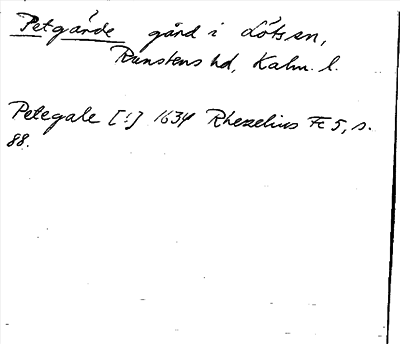 Petgärde gård i Löts sn,
Runstens hd, Kalm. l.
Petegale [!] 1634 Rhezelius Fc 5, s.
88.